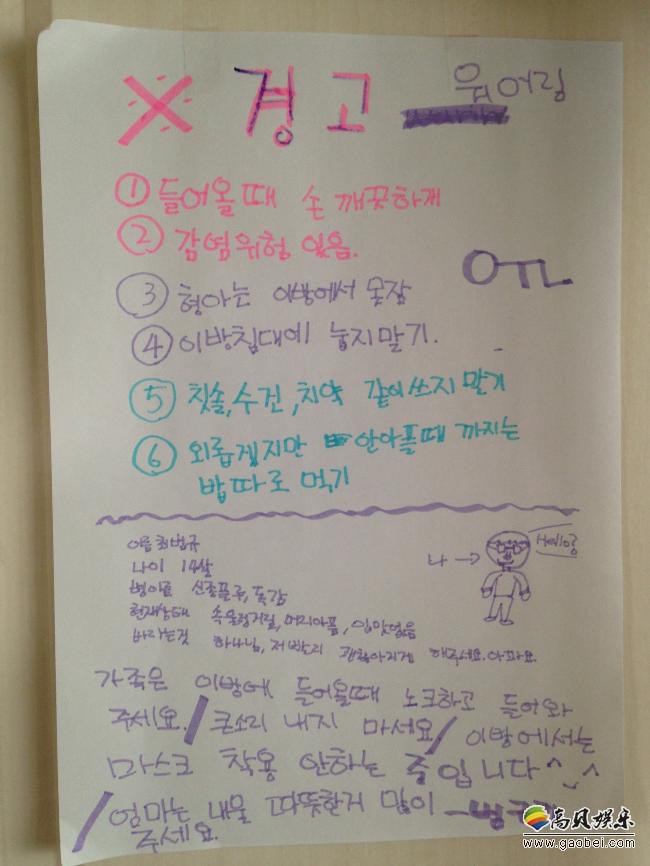 ※ 경고 워어링
① 들어올때 손 깨끗하게
② 감염위험 있음.
OTL
③ 형아는 이방에서 못잠
④ 이방침대에 눕지말기.
⑤ 칫솔,수건,치약 같이쓰지말기
⑥ 외롭겠지만 안아플때 까지는
밥따로먹기
이름 최범규
나이 14살
병이름 신종플루, 독감
나 →
Hello
현재상태 속울렁거림, 머리아픔, 입맛없음
바라는것 하나님, 저 빨리 괜찮아지게 해주세요. 아파요.
가족은 이방에 들어올때 노크하고 들어와
주세요. / 큰소리 내지 마세요 / 이방에서는
마스크 착용 안하는 줄입니다^^
/ 엄마는 내물 따뜻한거 많이
주세요.
高贝娱乐
www.gaobei.com